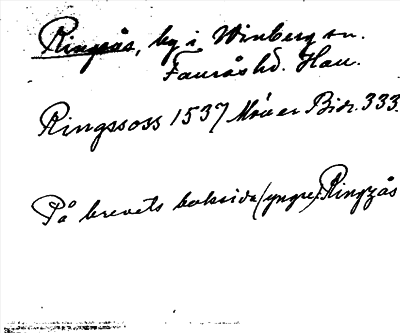 Ringsås, by i Winberg sn.
Faurås hd. Hall.
Ringssoss 1537 Möller Bidr. 333.
På brevets baksida (yngre) Ringzås